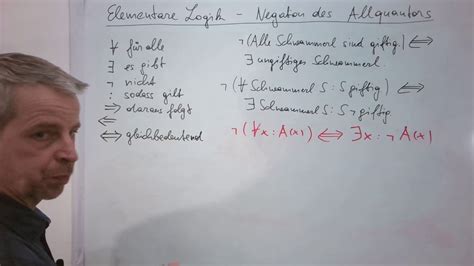 Elementare Logik - Negation des Allquantors
∀ für alle
∃ es gibt
¬ nicht
: sodass gilt
⇒ daraus folgt
⇐
⇔ gleichbedeutend
¬(Alle Schwammerl sind giftig) ⇔
∃ ungiftiges Schwammerl.
¬(∀ Schwammerl S: S giftig) ⇔
∃ Schwammerl S: S ¬ giftig
¬(∀x: A(x)) ⇔ ∃x: ¬A(x)